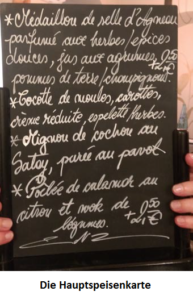 *Médaillon de selle d'agneau
parfumé aux herbes/épices
douces, jus aux agrumes, 0,50
pommes de terre/champignons. +21€
*Cocotte de moules, carottes,
crème réduite, espelette, herbes.
*Mignon de cochon au
Satay, purée au pavot.
*Poêlée de calamar au
citron et wok de 0,50
légumes. +21€
Die Hauptspeisenkarte